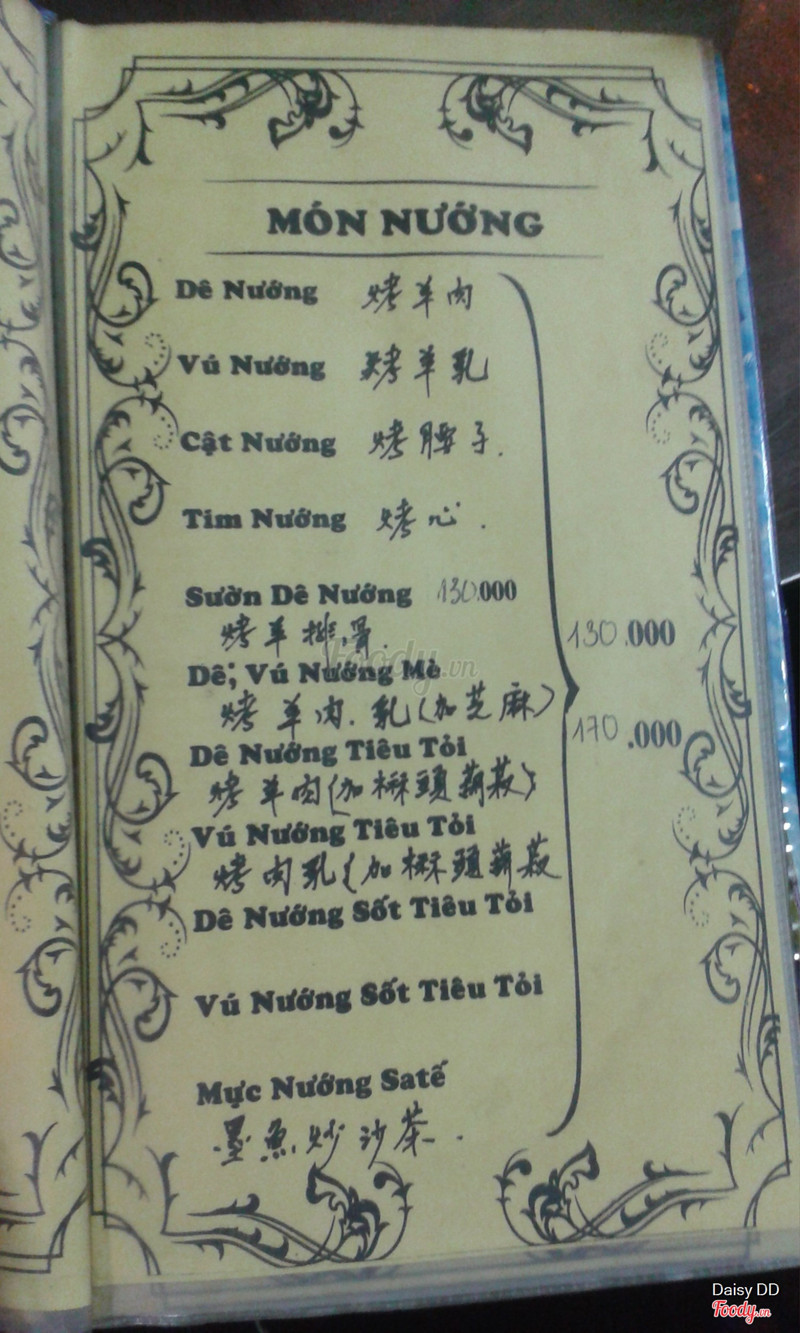 MÓN NƯỚNG
Dê Nướng 烤羊肉
Vú Nướng 烤羊乳
Cật Nướng 烤腰子.
Tim Nướng 烤心.
Sườn Dê Nướng 130.000
烤羊排骨.
130.000
Dê; Vú Nướng Mè
烤羊肉.乳(加芝麻)
170.000
Dê Nướng Tiêu Tỏi
烤羊肉(加
Vú Nướng Tiêu Tỏi
烤肉乳(加
Dê Nướng Sốt Tiêu Tỏi
Vú Nướng Sốt Tiêu Tỏi
Mực Nướng Satế
墨魚炒沙茶.
Foody.vn
Daisy DD
Foody.vn